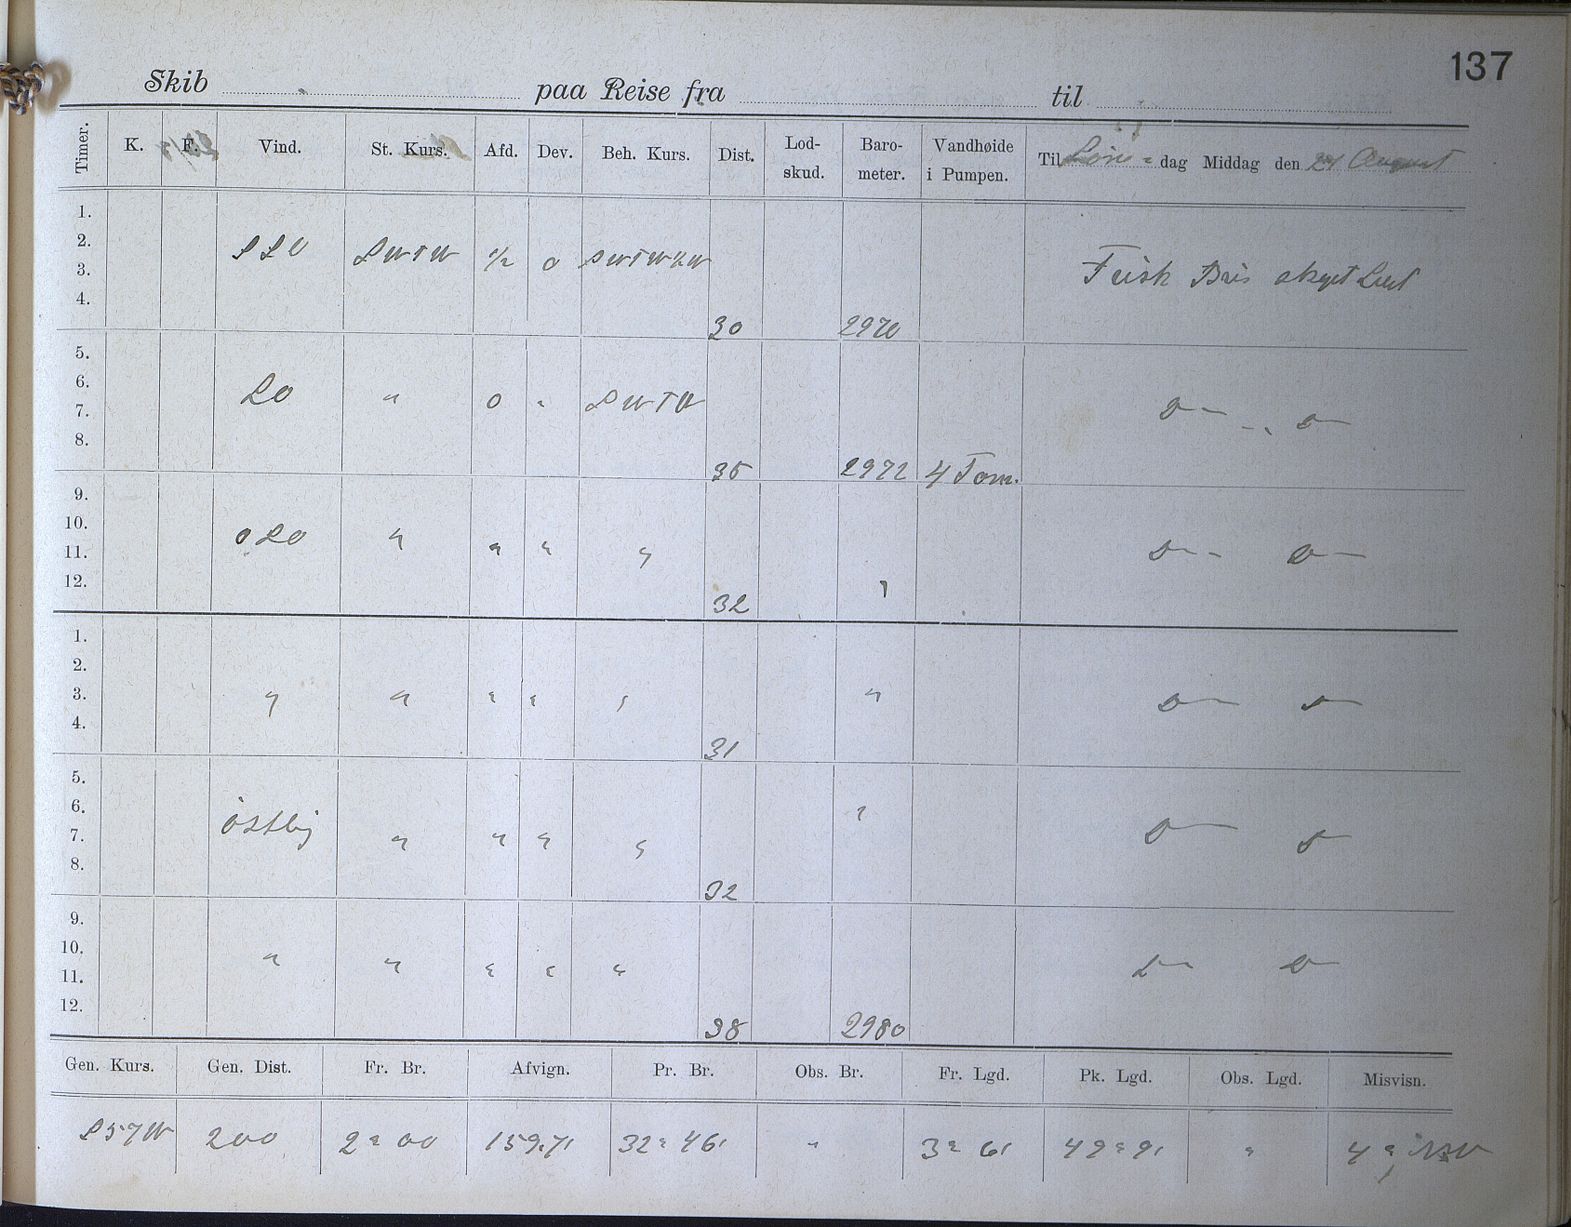 137
Skib paa Reise fra til
Timer. K. F. Vind. St. Kurs. Afd. Dev. Beh. Kurs. Dist. Lod-skud. Baro-meter. Vandhøide i Pumpen. Til Løver- dag Middag den 24 August
1.
2. SSO SWTW 1/2 0 SWTW½W Frisk Bris skyet Luft
3.
4.
30 2970
5.
6. SO " 0 " SWTW D— " D—
7.
8.
35 2972 4 Tom.
9.
10. OSO " " " " D— D—
11.
12. "
32
1.
2.
3. " " " " " " D— D—
4.
31
5.
6. Østlig "
7. " " " " D— D—
8.
32
9.
10. " " " " " D— D—
11.
12.
38 2980
Gen. Kurs. Gen. Dist. Fr. Br. Afvign. Pr. Br. Obs. Br. Fr. Lgd. Pk. Lgd. Obs. Lgd. Misvisn.
S57W 200 2°00 159.71 32°46' " 3°6' 49°9' "